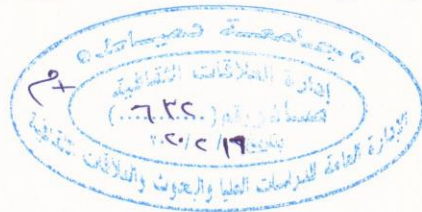 جامعة دمياط
إدارة العلاقات الثقافية
رقم
١٩/٢/٢٠٢٠
الإدارة العامة للدراسات العليا والبحوث والعلاقات الثقافية